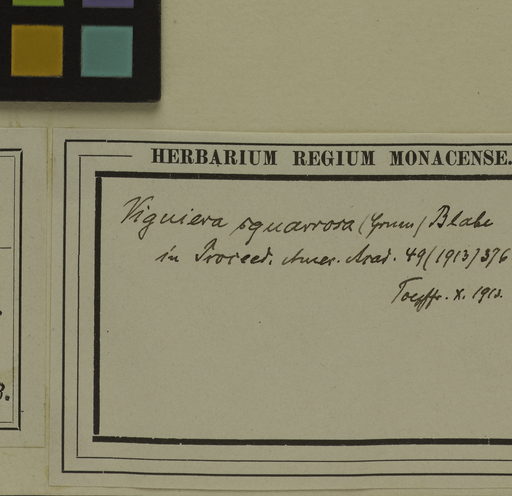 HERBARIUM REGIUM MONACENSE.
Viguiera squarrosa (Grum) Blake
in Proceed. Amer. Acad. 49 (1913) 376
Toepffr. X. 1913.
3.